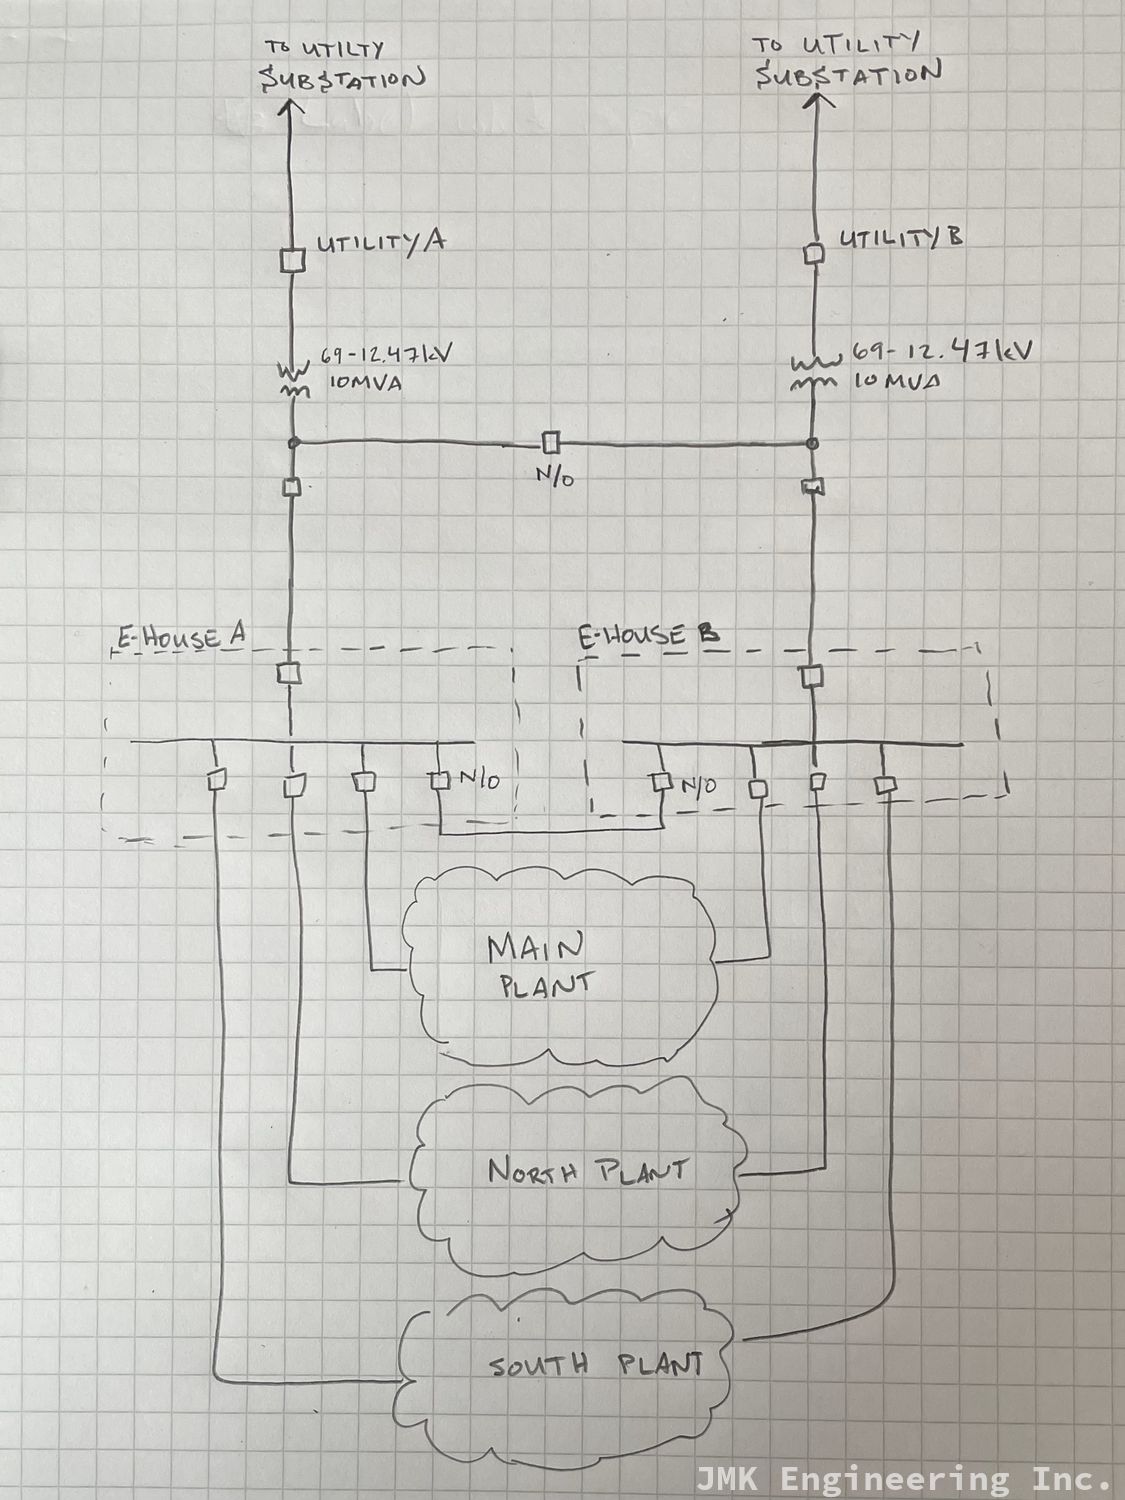 TO UTILTY
SUBSTATION
TO UTILITY
SUBSTATION
UTILITY A
UTILITY B
69-12.47kV
10MVA
69-12.47kV
10MVA
N/O
E-HOUSE A
E-HOUSE B
N/O
N/O
MAIN
PLANT
NORTH PLANT
SOUTH PLANT
JMK Engineering Inc.